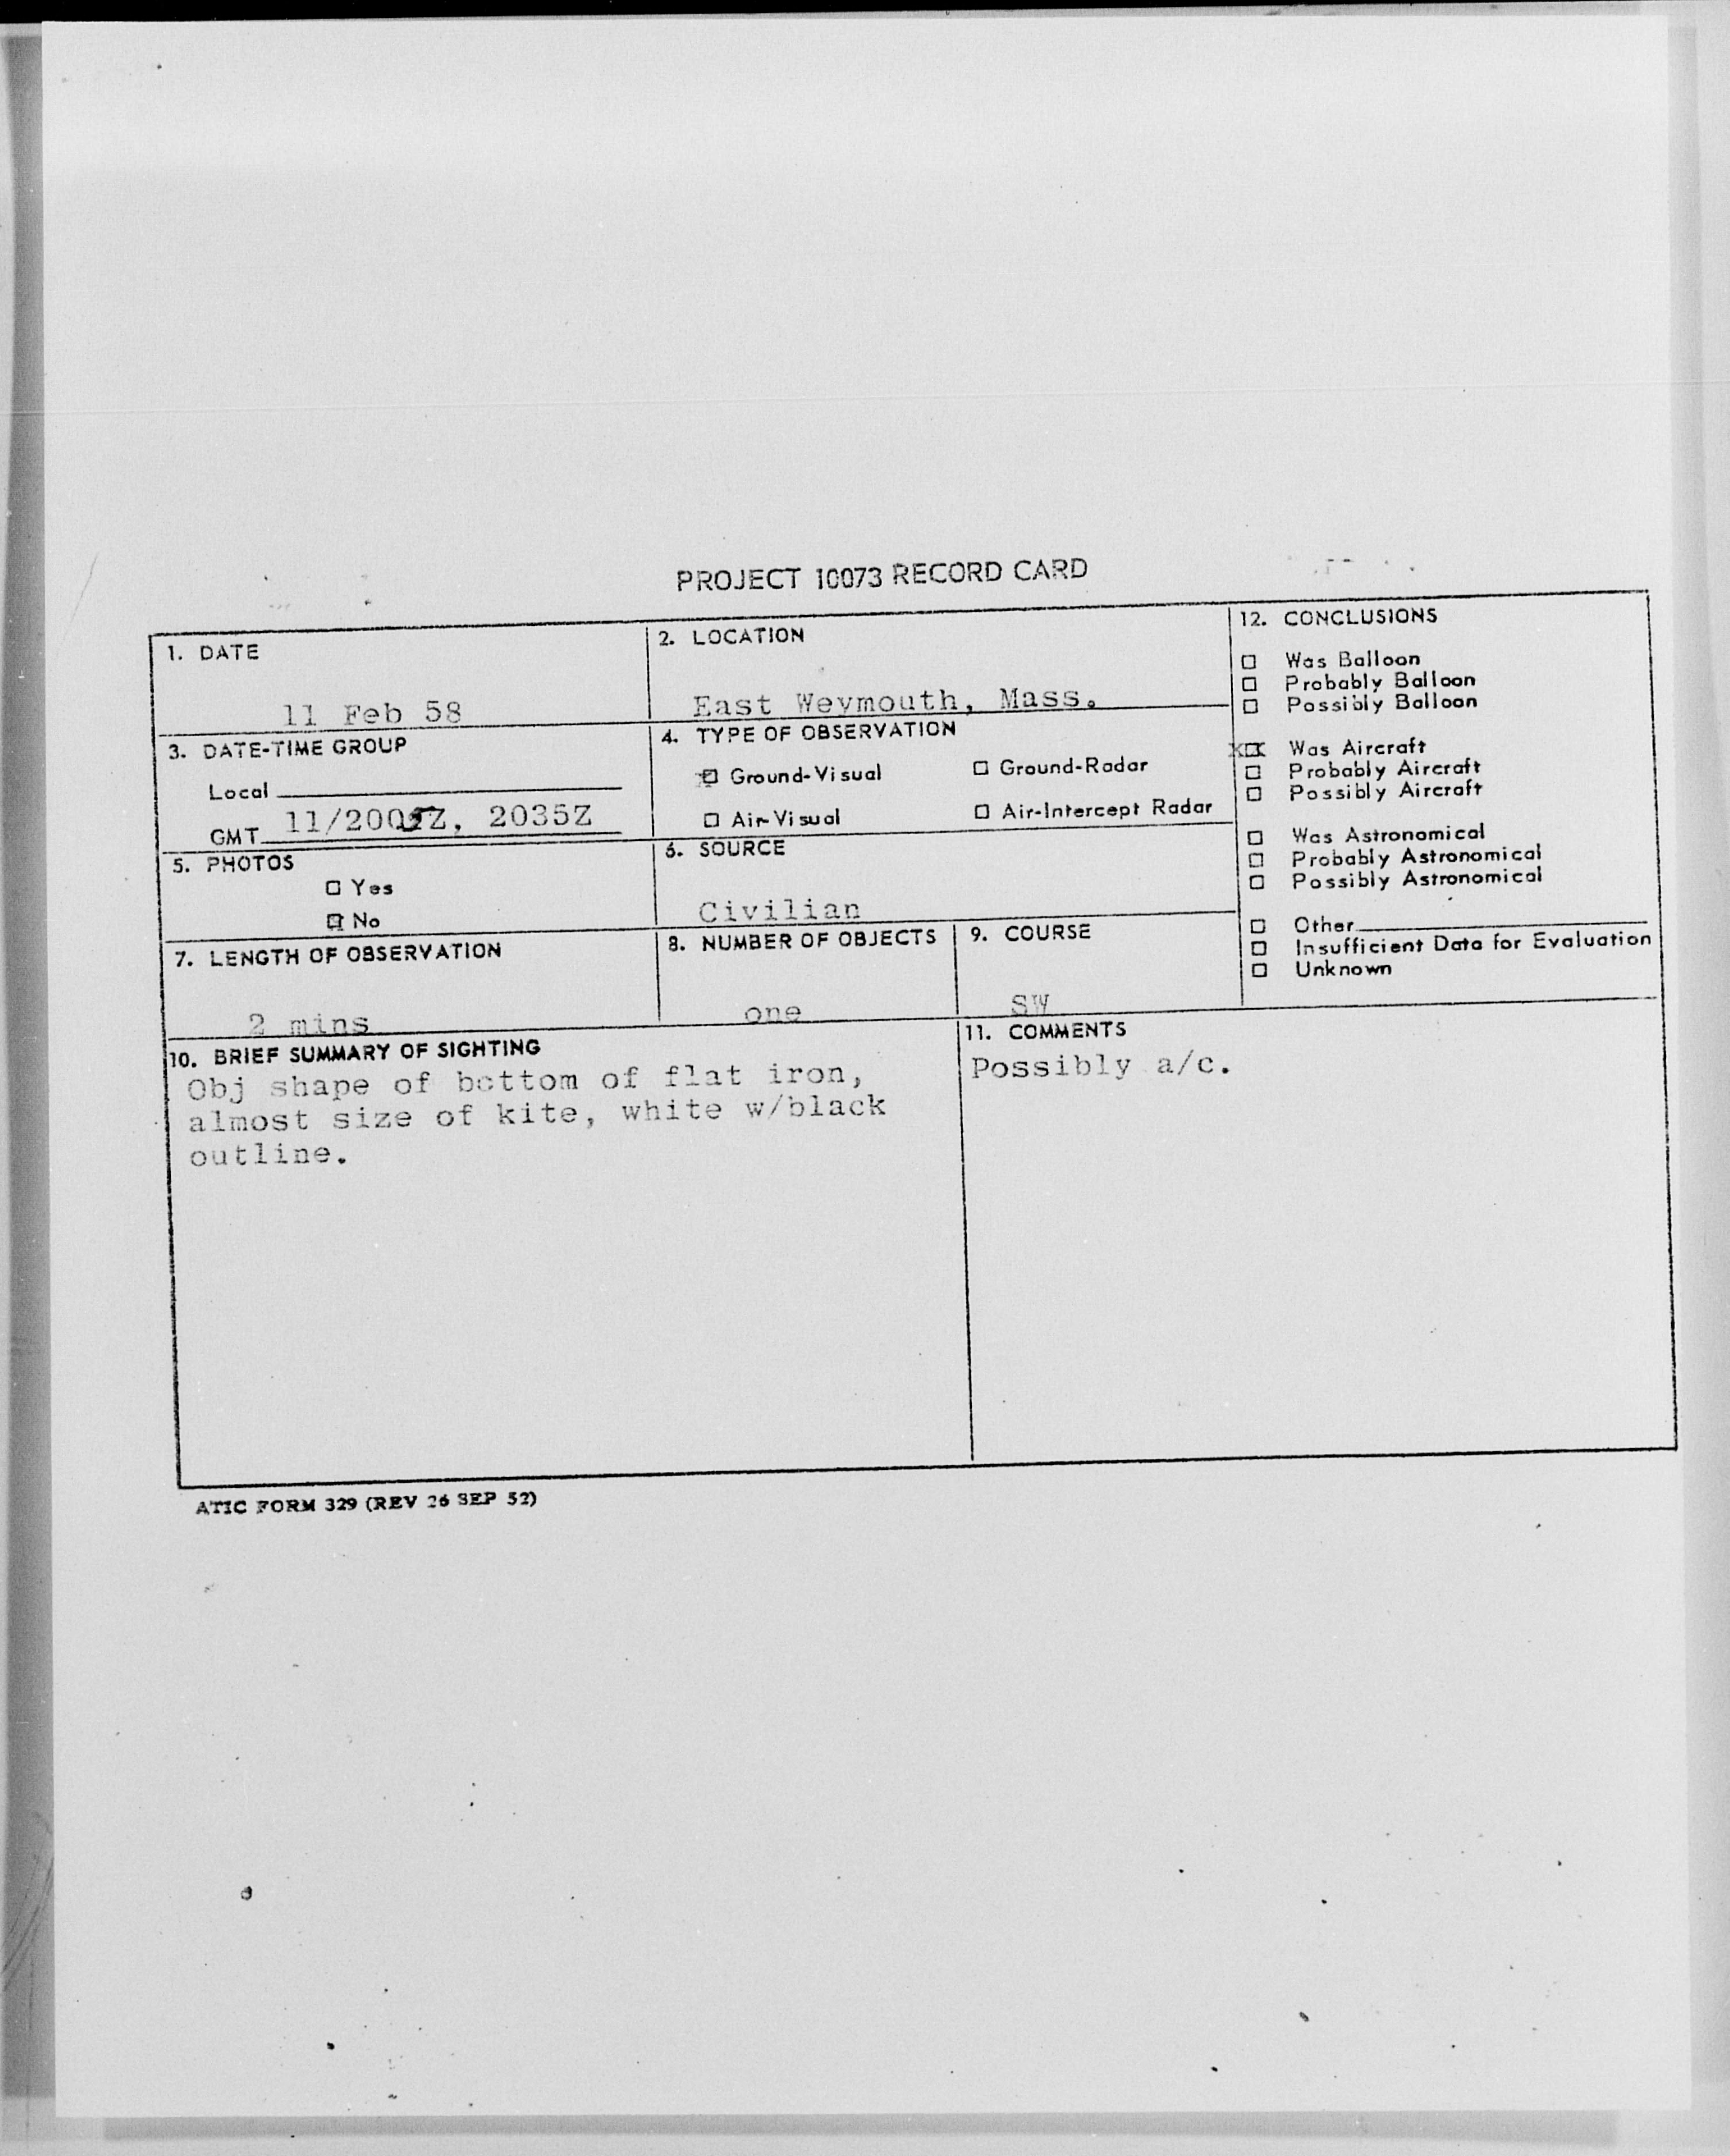 PROJECT 10073 RECORD CARD
1. DATE
11 Feb 58
2. LOCATION
East Weymouth, Mass.
3. DATE-TIME GROUP
Local
GMT 11/2005Z, 2035Z
4. TYPE OF OBSERVATION
Ground-Visual
Ground-Radar
Air-Visual
Air-Intercept Radar
5. PHOTOS
Yes
No
6. SOURCE
Civilian
7. LENGTH OF OBSERVATION
2 mins
8. NUMBER OF OBJECTS
one
9. COURSE
SW
10. BRIEF SUMMARY OF SIGHTING
Obj shape of bottom of flat iron,
almost size of kite, white w/black
outline.
11. COMMENTS
Possibly a/c.
12. CONCLUSIONS
Was Balloon
Probably Balloon
Possibly Balloon
xxx Was Aircraft
Probably Aircraft
Possibly Aircraft
Was Astronomical
Probably Astronomical
Possibly Astronomical
Other
Insufficient Data for Evaluation
Unknown
ATIC FORM 329 (REV 26 SEP 52)